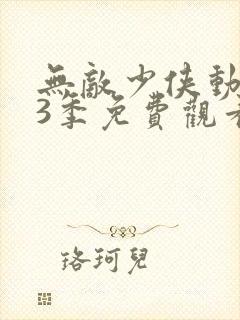 無敵少俠動
3季免費觀看
珞珂兒